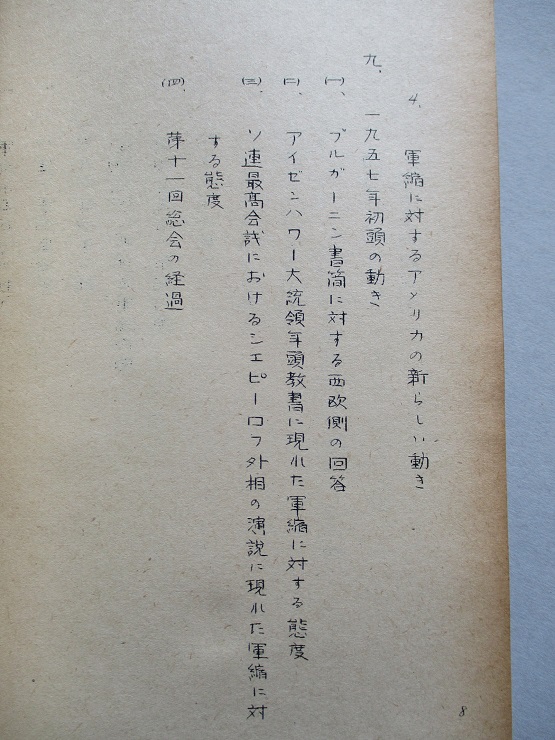 4. 軍縮に対するアメリカの新らしい動き
九、一九五七年初頭の動き
(一)、ブルガーニン書簡に対する西欧側の回答
(二)、アイゼンハワー大統領年頭教書に現れた軍縮に対する態度
(三)、ソ連最高会議におけるシエピーロフ外相の演説に現れた軍縮に対
する態度
(四)、第十一回総会の経過
8